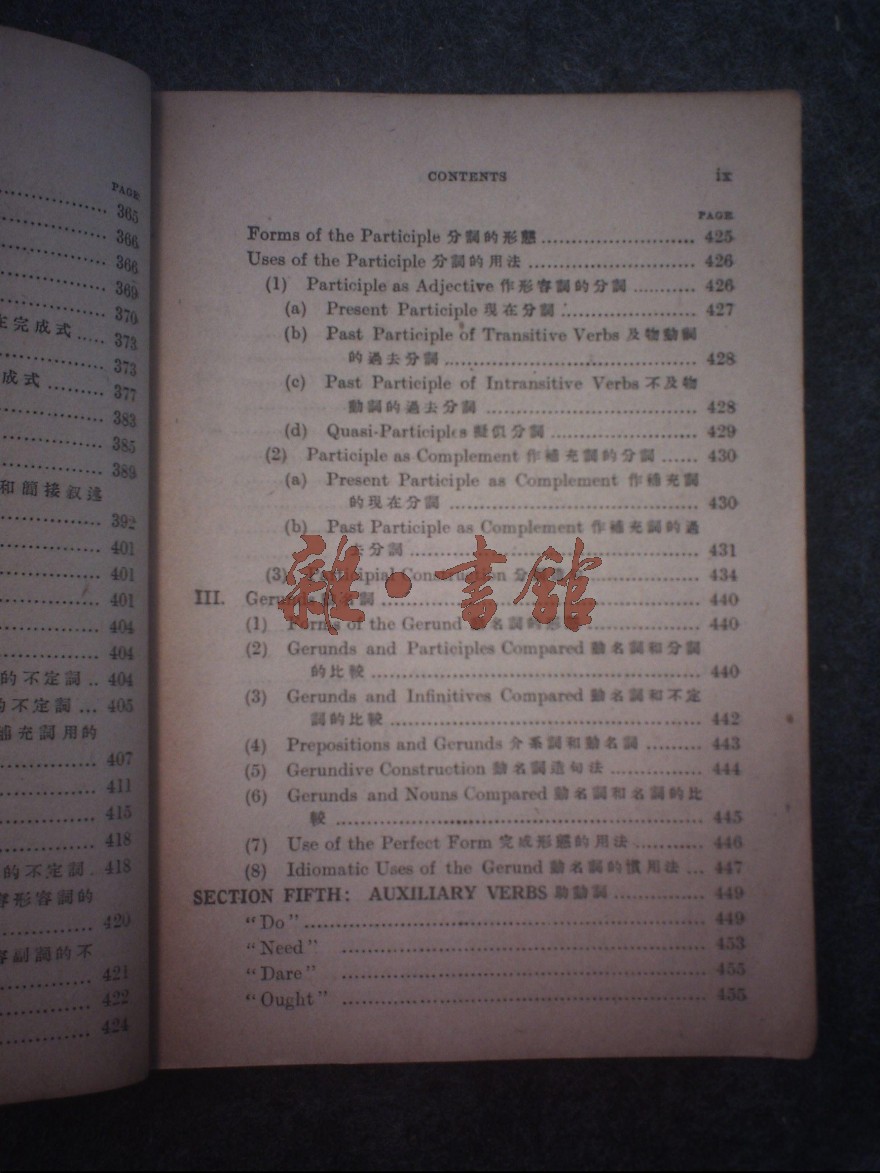 PAGE
365
366
366
369
370
完成式 ..... 373
373
成式 ........ 377
383
385
389
和簡接叙述
392
401
401
401
404
404
的不定詞 .. 404
的不定詞 ... 405
補充詞用的
407
411
415
418
的不定詞 . 418
形容詞的
420
容副詞的不
421
422
424
CONTENTS ix
PAGE
Forms of the Participle 分詞的形態 ........................ 425
Uses of the Participle 分詞的用法 .......................... 426
(1) Participle as Adjective 作形容詞的分詞 .......... 426
(a) Present Participle 現在分詞 ..................... 427
(b) Past Participle of Transitive Verbs 及物動詞
的過去分詞 ....................................... 428
(c) Past Participle of Intransitive Verbs 不及物
動詞的過去分詞 ................................. 428
(d) Quasi-Participles 擬似分詞 ....................... 429
(2) Participle as Complement 作補充詞的分詞 ...... 430
(a) Present Participle as Complement 作補充詞
的現在分詞 ....................................... 430
(b) Past Participle as Complement 作補充詞的過
去分詞 ............................................. 431
(3) Participial Construction 分詞 434
III. Gerunds 動名詞 ................................................ 440
(1) Forms of the Gerund 動名詞的形態 ................ 440
(2) Gerunds and Participles Compared 動名詞和分詞
的比較 .................................................... 440
(3) Gerunds and Infinitives Compared 動名詞和不定
詞的比較 ................................................ 442
(4) Prepositions and Gerunds 介系詞和動名詞 ......... 443
(5) Gerundive Construction 動名詞造句法 .............. 444
(6) Gerunds and Nouns Compared 動名詞和名詞的比
較 ......................................................... 445
(7) Use of the Perfect Form 完成形態的用法 ........... 446
(8) Idiomatic Uses of the Gerund 動名詞的慣用法 ... 447
SECTION FIFTH: AUXILIARY VERBS 助動詞 .............. 449
“Do” .............................................................. 449
“Need” ........................................................ 453
“Dare” ........................................................ 455
“Ought” ....................................................... 455
雜·書館